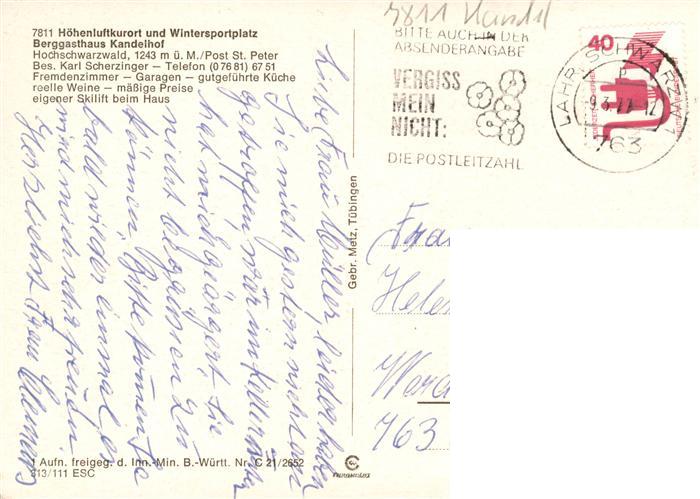 7811 Höhenluftkurort und Wintersportplatz
Berggasthaus Kandelhof
Hochschwarzwald, 1243 m ü. M./Post St. Peter
Bes. Karl Scherzinger – Telefon (07681) 6751
Fremdenzimmer – Garagen – gutgeführte Küche
reelle Weine – mäßige Preise
eigener Skilift beim Haus
Liebe Frau Müller, leider haben
Sie mich gestern nicht an
getroffen, war im Keller
hat mich geärgert, Sie
nicht begrüssen zu
können. Bitte kommen Sie
bald wieder einmal, es
wird mich sehr freuen.
Herzlichst Frau
1 Aufn. freigeg. d. Inn.-Min. B.-Württ. Nr. C 21/2652
313/111 ESC
Gebr. Metz, Tübingen
7811 Kandel
BITTE AUCH IN DER
ABSENDERANGABE
VERGISS
MEIN
NICHT:
DIE POSTLEITZAHL
40
LAHR, SCHWARZW 1
763
Frau
Hele
763